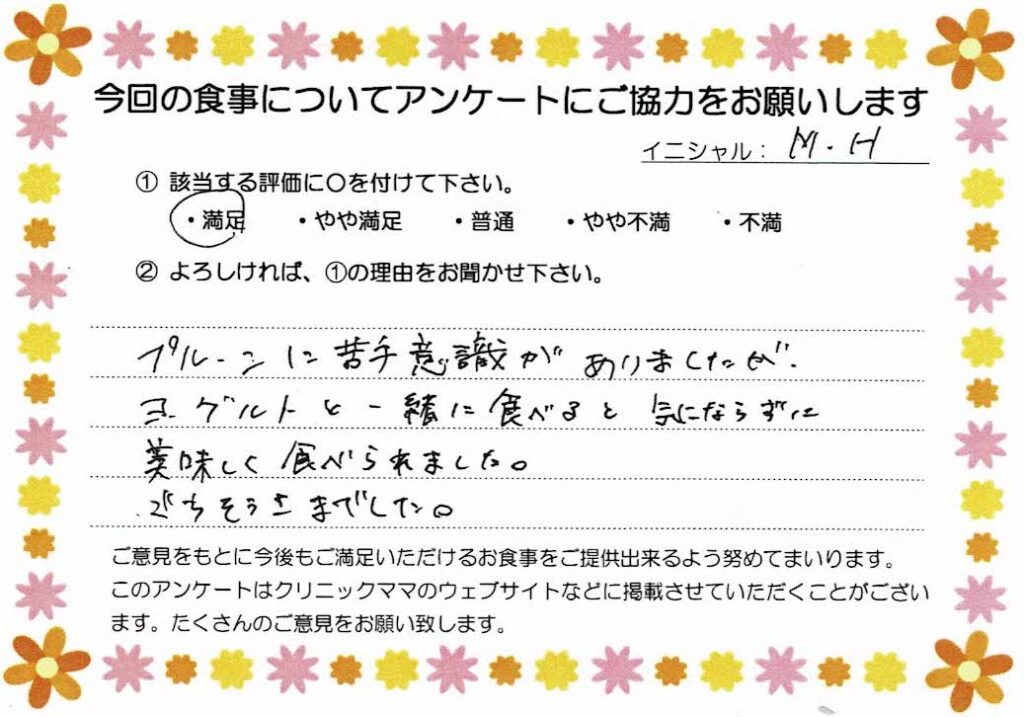 今回の食事についてアンケートにご協力をお願いします
イニシャル： M．H
① 該当する評価に○を付けて下さい。
・満足 ・やや満足 ・普通 ・やや不満 ・不満
② よろしければ、①の理由をお聞かせ下さい。
プルーンに苦手意識がありましたが、
ヨーグルトと一緒に食べると気にならずに
美味しく食べられました。
ごちそうさまでした。
ご意見をもとに今後もご満足いただけるお食事をご提供出来るよう努めてまいります。
このアンケートはクリニックママのウェブサイトなどに掲載させていただくことがござい
ます。たくさんのご意見をお願い致します。